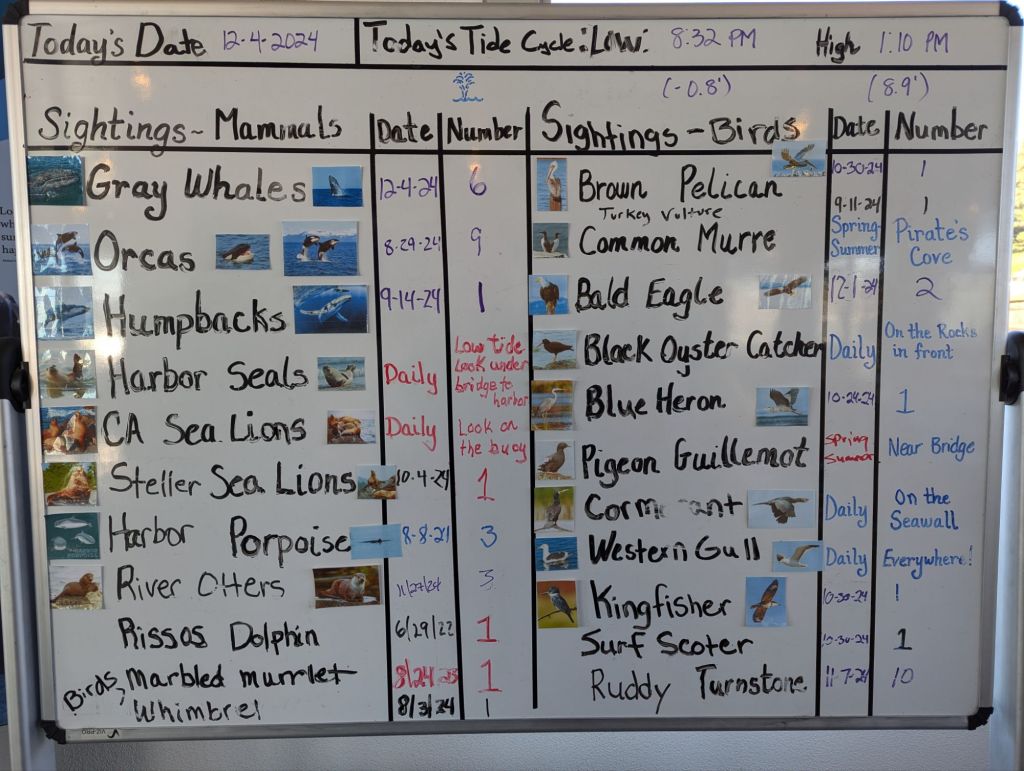 Today's Date 12-4-2024
Today's Tide Cycle: Low: 8:32 PM High 1:10 PM
(-0.8') (8.9')
Sightings - Mammals Date Number
Gray Whales 12-4-24 6
Orcas 8-29-24 9
Humpbacks 9-14-24 1
Harbor Seals Daily Low tide
Look under
bridge to
harbor
CA Sea Lions Daily Look on
the buoy
Steller Sea Lions 10-4-24 1
Harbor Porpoise 8-8-21 3
River Otters 11/27/24 3
Rissos Dolphin 6/29/22 1
Birds, Marbled murrlet 8/24 1
Whimbrel 8/3/24 1
Sightings - Birds Date Number
Brown Pelican 10-30-24 1
Turkey Vulture 9-11-24 1
Common Murre Spring Summer Pirate's
Cove
Bald Eagle 12-1-24 2
Black Oyster Catcher Daily On the Rocks
in front
Blue Heron 10-24-24 1
Pigeon Guillemot Spring Summer Near Bridge
Corm ant Daily On the
Seawall
Western Gull Daily Everywhere!
Kingfisher 10-30-24 1
Surf Scoter 10-30-24 1
Ruddy Turnstone 11-7-24 10